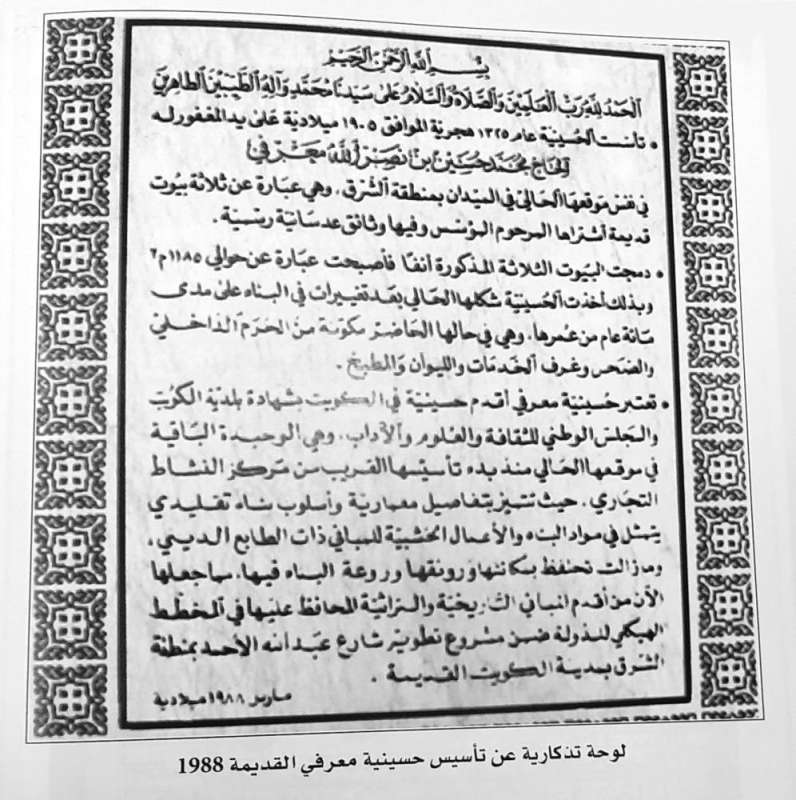 بسم الله الرحمن الرحيم
الحمد لله رب العالمين والصلاة والسلام على سيدنا محمد وآله الطيبين الطاهرين
• تأسست الحسينية عام ١٣٢٥ هجرية الموافق ١٩٠٥ ميلادية على يد المغفور له
الحاج محمد حسين بن نصر الله معرفي
في نفس موقعها الحالي في الميدان بمنطقة الشرق . وهي عبارة عن ثلاثة بيوت
قديمة أشتراها المرحوم المؤسس وفيها وثائق عدسانية رسمية .
• دمجت البيوت الثلاثة المذكورة آنفا فأصبحت عبارة عن حوالي ١١٨٥م٢
وبذلك أخذت الحسينية شكلها الحالي بعد تغييرات في البناء على مدى
مائة عام من عمرها . وهي في حالها الحاضر مكونة من الحرم الداخلي
والصحن وغرف الخدمات والليوان والمطبخ .
• تعتبر حسينية معرفي أقدم حسينية في الكويت بشهادة بلدية الكويت
والمجلس الوطني للثقافة والعلوم والآداب . وهي الوحيدة الباقية
في موقعها الحالي منذ بدء تأسيسها القريب من مركز النشاط
التجاري . حيث تتميز بتفاصيل معمارية وأسلوب بناء تقليدي
يتمثل في مواد البناء والأعمال الخشبية للمباني ذات الطابع الديني .
وما زالت تحتفظ بمكانتها ورونقها وروعة البناء فيها . مما جعلها
الآن من أقدم المباني التاريخية والتراثية المحافظ عليها في المخطط
الهيكلي للدولة ضمن مشروع تطوير شارع عبد الله الأحمد بمنطقة
الشرق بمدينة الكويت القديمة .
مارس ١٩٨٨ ميلادية
لوحة تذكارية عن تأسيس حسينية معرفي القديمة 1988